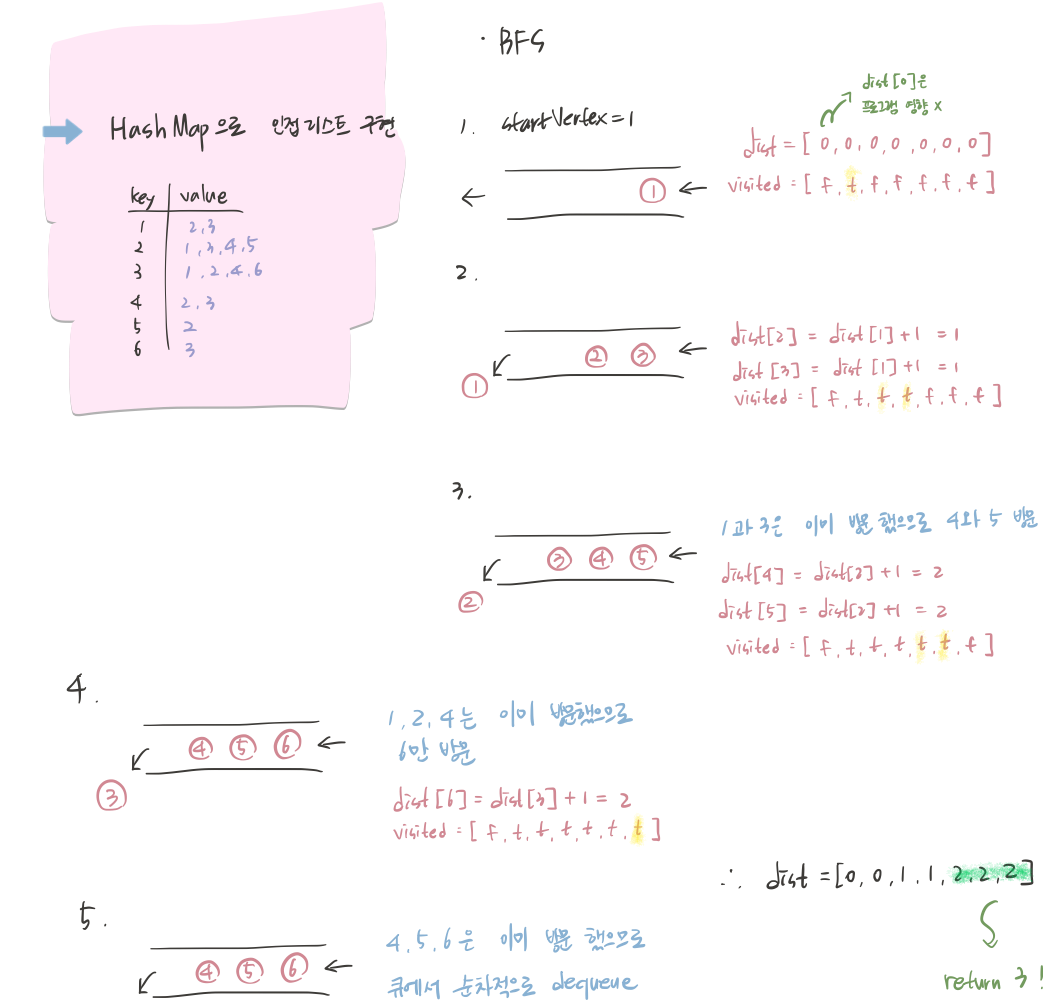 HashMap으로 인접 리스트 구현
key value
1 2,3
2 1,3,4,5
3 1,2,4,6
4 2,3
5 2
6 3
· BFS
1. startVertex=1
dist[0]은
프로그램 영향 x
dist = [ 0, 0, 0, 0, 0, 0, 0 ]
visited = [ f, t, f, f, f, f, f ]
← 1 ←
2.
2 3 ←
1
dist[2] = dist[1]+1 = 1
dist[3] = dist[1]+1 = 1
visited = [ f, t, t, t, f, f, f ]
3.
3 4 5 ←
2
1과 3은 이미 방문 했으므로 4와 5 방문
dist[4] = dist[2]+1 = 2
dist[5] = dist[2]+1 = 2
visited = [ f, t, t, t, t, t, f ]
4.
4 5 6 ←
3
1,2,4는 이미 방문했으므로
6만 방문
dist[6] = dist[3]+1 = 2
visited = [ f, t, t, t, t, t, t ]
5.
4 5 6 ←
4,5,6은 이미 방문 했으므로
큐에서 순차적으로 dequeue
∴ dist = [0, 0, 1, 1, 2, 2, 2]
return 3!